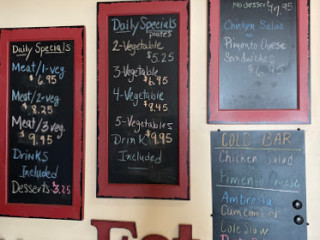 Daily Specials
Meat/1-veg
$6.95
Meat/2-veg
$8.25
Meat/3 veg
$9.95
Drinks
Included
Desserts 3.25
Daily Specials
plates
2-Vegetable
$5.25
3-Vegetable
$6.95
4-Vegetable
$9.45
5-Vegetables
Drink $9.95
Included
No dessert
Chicken Salad
Pimento Cheese
Sandwiches
COLD BAR
Chicken salad
Pimento Cheese
Ambrosia
Cole Slaw
Eat